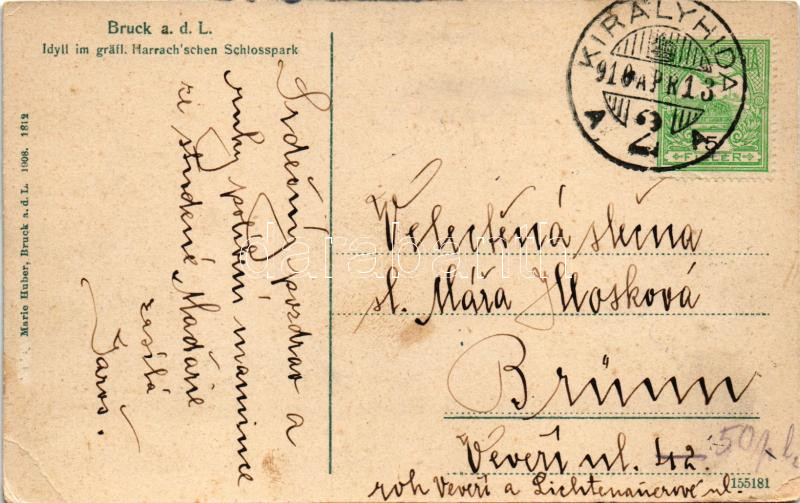 Bruck a. d. L.
Idyll im gräfl. Harrach'schen Schlosspark
Marie Huber, Bruck a. d. L. 1908. 1812
Srdečný pozdrav a
ruky políbení mamince
ze studené Maďarie
zasílá
Jaroš.
KIRALYHIDA
910 APR 13
A 2 A
5
FILLER
Velectěná slečna
sl. Mářa Hosková
Brünn
Veveří ul. 42.
roh Veveří a Lichtenauerové ul
50
155181
darabanth